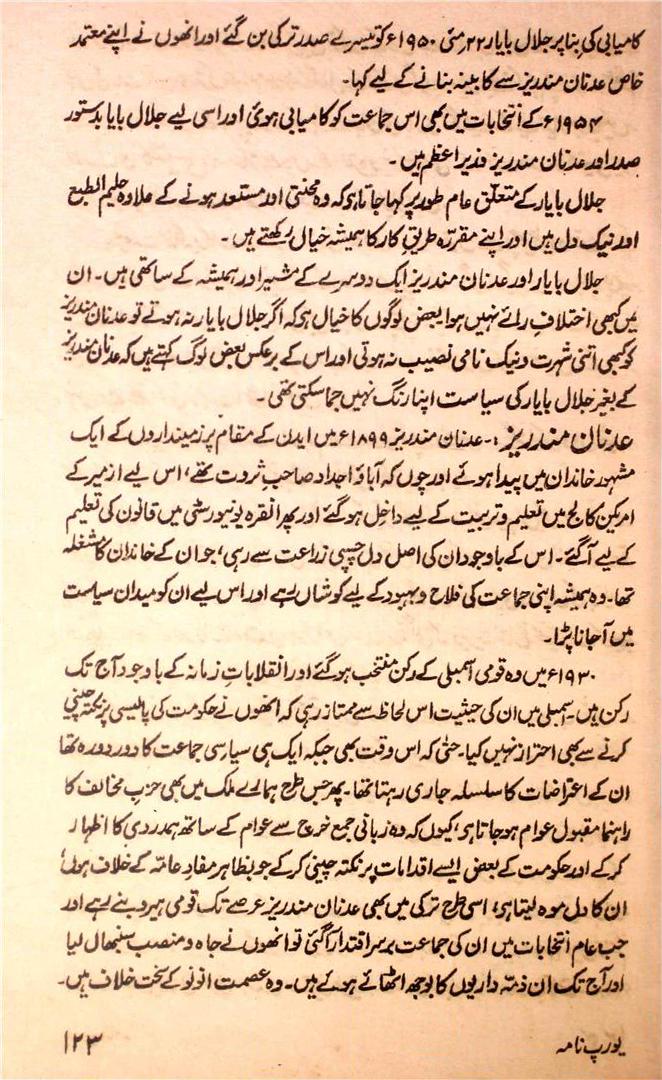 کامیابی کی بنا پر جلال بایار ۲۲ مئی ۱۹۵۰ء کو تیسرے صدر ترکی بن گئے اور انھوں نے اپنے معتمد
خاص عدنان مندریز سے کابینہ بنانے کے لیے کہا۔
۱۹۵۴ء کے انتخابات میں بھی اس جماعت کو کامیابی ہوئ اور اسی لیے جلال بایار بدستور
صدر اور عدنان مندریز وزیر اعظم ہیں۔
جلال بایار کے متعلق عام طور پر کہا جاتا ہو کہ وہ محنتی اور مستعد ہونے کے علاوہ حلیم الطبع
اور نیک دل ہیں اور اپنے مقررّہ طریقِ کار کا ہمیشہ خیال رکھتے ہیں۔
جلال بایار اور عدنان مندریز ایک دوسرے کے مشیر اور ہمیشہ کے ساتھی ہیں۔ ان
میں کبھی اختلافِ رائے نہیں ہوا بعض لوگوں کا خیال ہو کہ اگر جلال بایار نہ ہوتے تو عدنان مندریز
کو کبھی اتنی شہرت و نیک نامی نصیب نہ ہوتی اور اس کے برعکس بعض لوگ کہتے ہیں کہ عدنان مندریز
کے بغیر جلال بایار کی سیاست اپنا رنگ نہیں جما سکتی تھی۔
عدنان مندریز :۔ عدنان مندریز ۱۸۹۹ء میں ایدن کے مقام پر زمینداروں کے ایک
مشہور خاندان میں پیدا ہوئے اور چوں کہ آباؤ اجداد صاحبِ ثروت تھے، اس لیے ازمیر کے
امریکن کالج میں تعلیم و تربیت کے لیے داخل ہو گئے اور پھر انقرہ یونیورسٹی میں قانون کی تعلیم
کے لیے آ گئے۔ اس کے باوجود ان کی اصل دل چسپی زراعت سے رہی، جو ان کے خاندان کا مشغلہ
تھا۔ وہ ہمیشہ اپنی جماعت کی فلاح و بہبود کے لیے کوشاں رہے اور اس لیے ان کو میدان سیاست
میں آ جانا پڑا۔
۱۹۳۰ء میں وہ قومی اسمبلی کے رکن منتخب ہو گئے اور انقلاباتِ زمانہ کے باوجود آج تک
رکن ہیں۔ اسمبلی میں ان کی حیثیت اس لحاظ سے ممتاز رہی کہ انھوں نے حکومت کی پالیسی پر نکتہ چینی
کرنے سے کبھی احتراز نہیں کیا۔ حتیٰ کہ اس وقت بھی جبکہ ایک ہی سیاسی جماعت کا دور دورہ تھا
ان کے اعتراضات کا سلسلہ جاری رہتا تھا۔ پھر جس طرح ہمارے ملک میں بھی حزب مخالف کا
راہنما مقبول عوام ہو جاتا ہو، کیوں کہ وہ زبانی جمع خرچ سے عوام کے ساتھ ہمدردی کا اظہار
کر کے اور حکومت کے بعض ایسے اقدامات پر نکتہ چینی کر کے جو بظاہر مفادِ عامہ کے خلاف ہوں،
ان کا دل موہ لیتا ہو، اسی طرح ترکی میں بھی عدنان مندریز عرصے تک قومی ہیرو بنے رہے اور
جب عام انتخابات میں ان کی جماعت برسر اقتدار آ گئی تو انھوں نے جاہ و منصب سنبھال لیا
اور آج تک ان ذمّہ داریوں کا بوجھ اٹھائے ہوئے ہیں۔ وہ عصمت انونو کے سخت خلاف ہیں۔
یورپ نامہ
۱۲۳